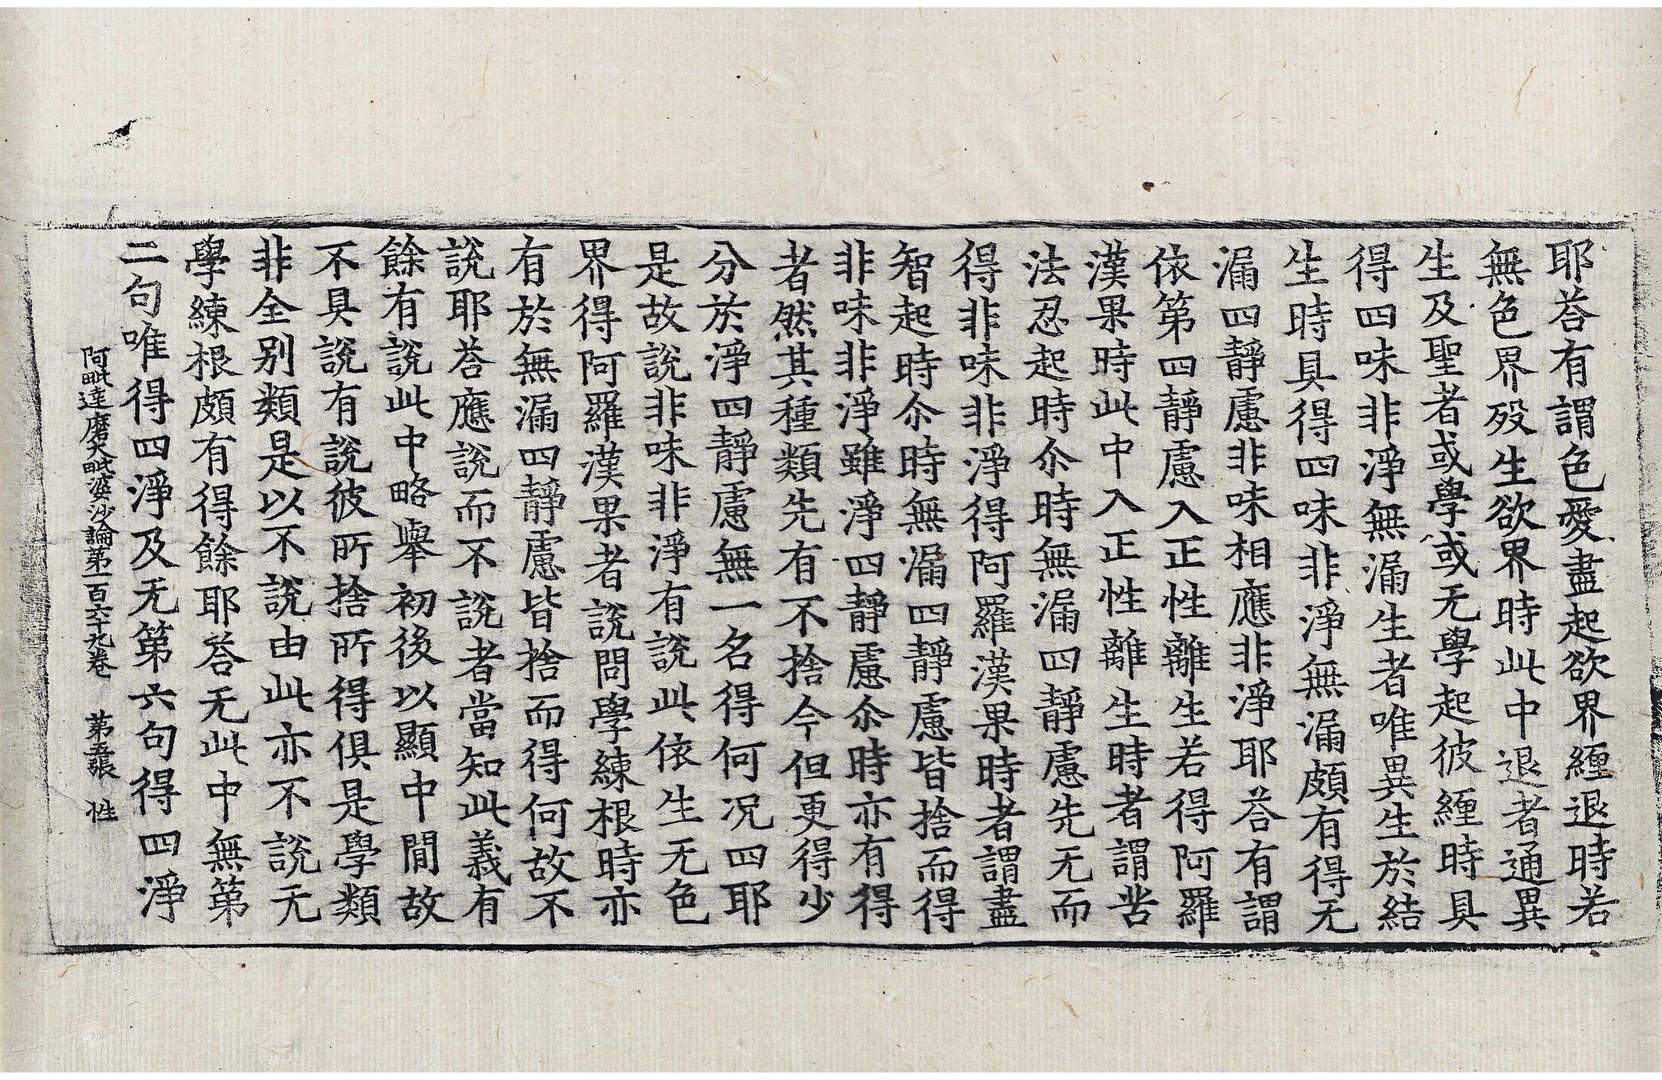 耶荅有謂色愛盡起欲界纏退時若
無色界歿生欲界時此中退者通異
生及聖者或學或无學起彼纏時具
得四味非淨無漏生者唯異生於結
生時具得四味非淨無漏頗有得无
漏四靜慮非味相應非淨耶荅有謂
依第四靜慮入正性離生若得阿羅
漢果時此中入正性離生時者謂苦
法忍起時尒時無漏四靜慮先无而
得非味非淨得阿羅漢果時者謂盡
智起時尒時無漏四靜慮皆捨而得
非味非淨雖淨四靜慮尒時亦有得
者然其種類先有不捨今但更得少
分於淨四靜慮無一名得何况四耶
是故說非味非淨有說此依生无色
界得阿羅漢果者說問學練根時亦
有於無漏四靜慮皆捨而得何故不
說耶荅應說而不說者當知此義有
餘有說此中略舉初後以顯中間故
不具說有說彼所捨所得俱是學類
非全別類是以不說由此亦不說无
學練根頗有得餘耶荅无此中無第
二句唯得四淨及无第六句得四淨
阿毗達磨大毗婆沙論第一百六十九卷　第五張　性